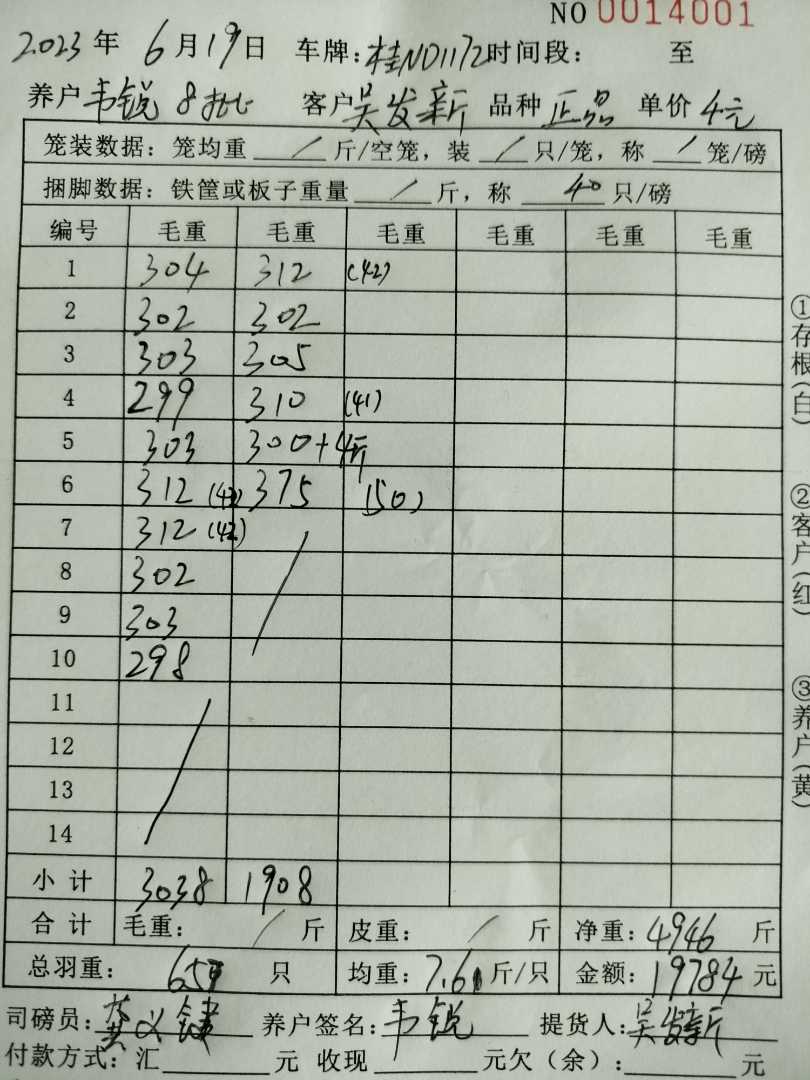 NO 0014001
2023年6月19日 车牌:桂ND1172时间段: 至
养户韦锐 8批 客户吴发新 品种正品 单价4元
笼装数据:笼均重 / 斤/空笼,装 / 只/笼,称 / 笼/磅
捆脚数据:铁筐或板子重量 / 斤,称 40 只/磅
编号 毛重 毛重 毛重 毛重 毛重 毛重
1 304 312 (42)
2 302 302
3 303 305
4 299 310 (41)
5 303 300+4斤
6 312 (42) 375 (50)
7 312 (42)
8 302
9 303
10 298
11
12
13
14
小计 3038 1908
合计 毛重: / 斤 皮重: / 斤 净重:4946 斤
总羽重: 只 均重:7.61斤/只 金额:19784元
司磅员: 养户签名:韦锐 提货人:吴发新
付款方式:汇 元 收现 元欠(余): 元
①存根(白)
②客户(红)
③养户(黄)